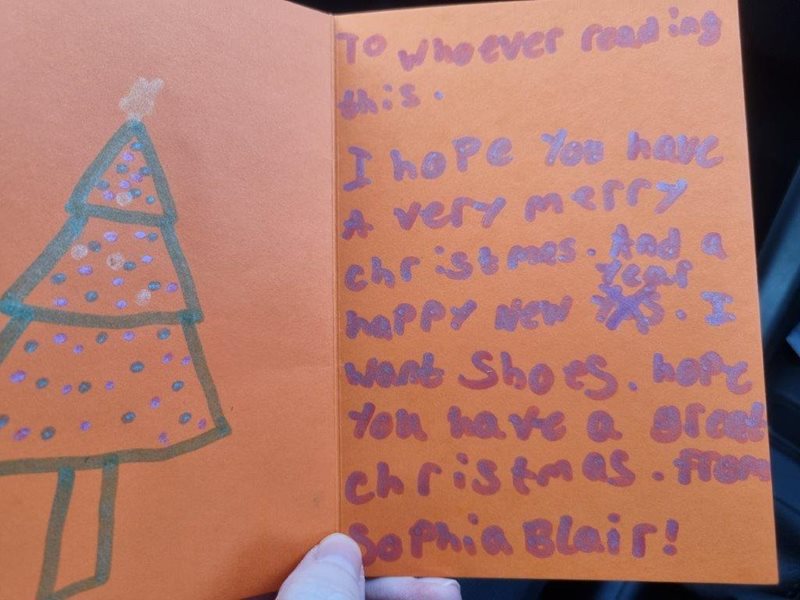 To whoever reading
this.
I hope You have
A very merry
christmas. And a
Year
happy New . I
want Shoes. hope
You have a great
christmas. from
Sophia Blair!